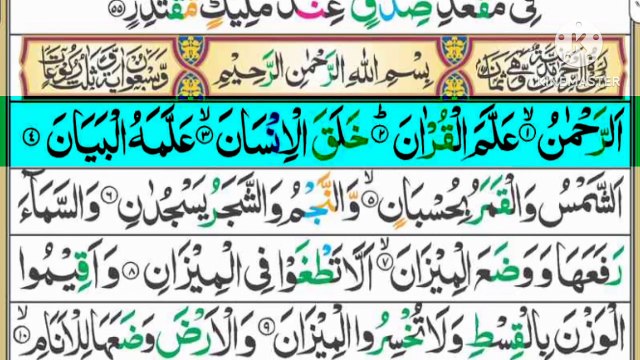 فِىْ مَقْعَدِ صِدْقٍ عِنْدَ مَلِيْكٍ مُّقْتَدِرٍ ۝٥٥
بِسْمِ اللّٰهِ الرَّحْمٰنِ الرَّحِيْمِ
اَلرَّحْمٰنُ ۙ‏۝١ عَلَّمَ الْقُرْاٰنَ ؕ‏۝٢ خَلَقَ الْاِنْسَانَ ۙ‏۝٣ عَلَّمَهُ الْبَيَانَ ۝٤
اَلشَّمْسُ وَالْقَمَرُ بِحُسْبَانٍ ۙ‏۝٥ وَّالنَّجْمُ وَالشَّجَرُ يَسْجُدٰنِ ۝٦ وَالسَّمَآءَ
رَفَعَهَا وَوَضَعَ الْمِيْزَانَ ۙ‏۝٧ اَلَّا تَطْغَوْا فِى الْمِيْزَانِ ۝٨ وَاَقِيْمُوا
الْوَزْنَ بِالْقِسْطِ وَلَا تُخْسِرُوا الْمِيْزَانَ ۝٩ وَالْاَرْضَ وَضَعَهَا لِلْاَنَامِ ۙ‏۝١٠